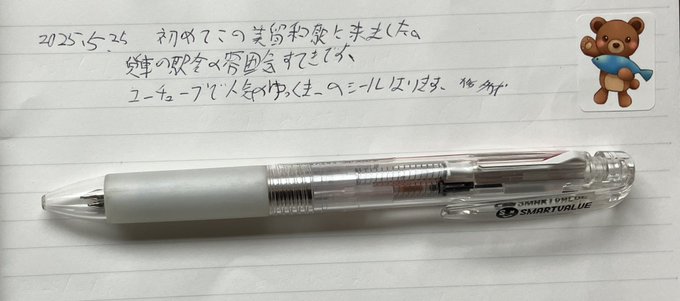 2025.5.25 初めてこの美留和駅に来ました。
の駅舎の雰囲気すてきです。
ユーチューブで人気のゆっくまーのシールはります。
SMARTVALUE
SMARTVALUE